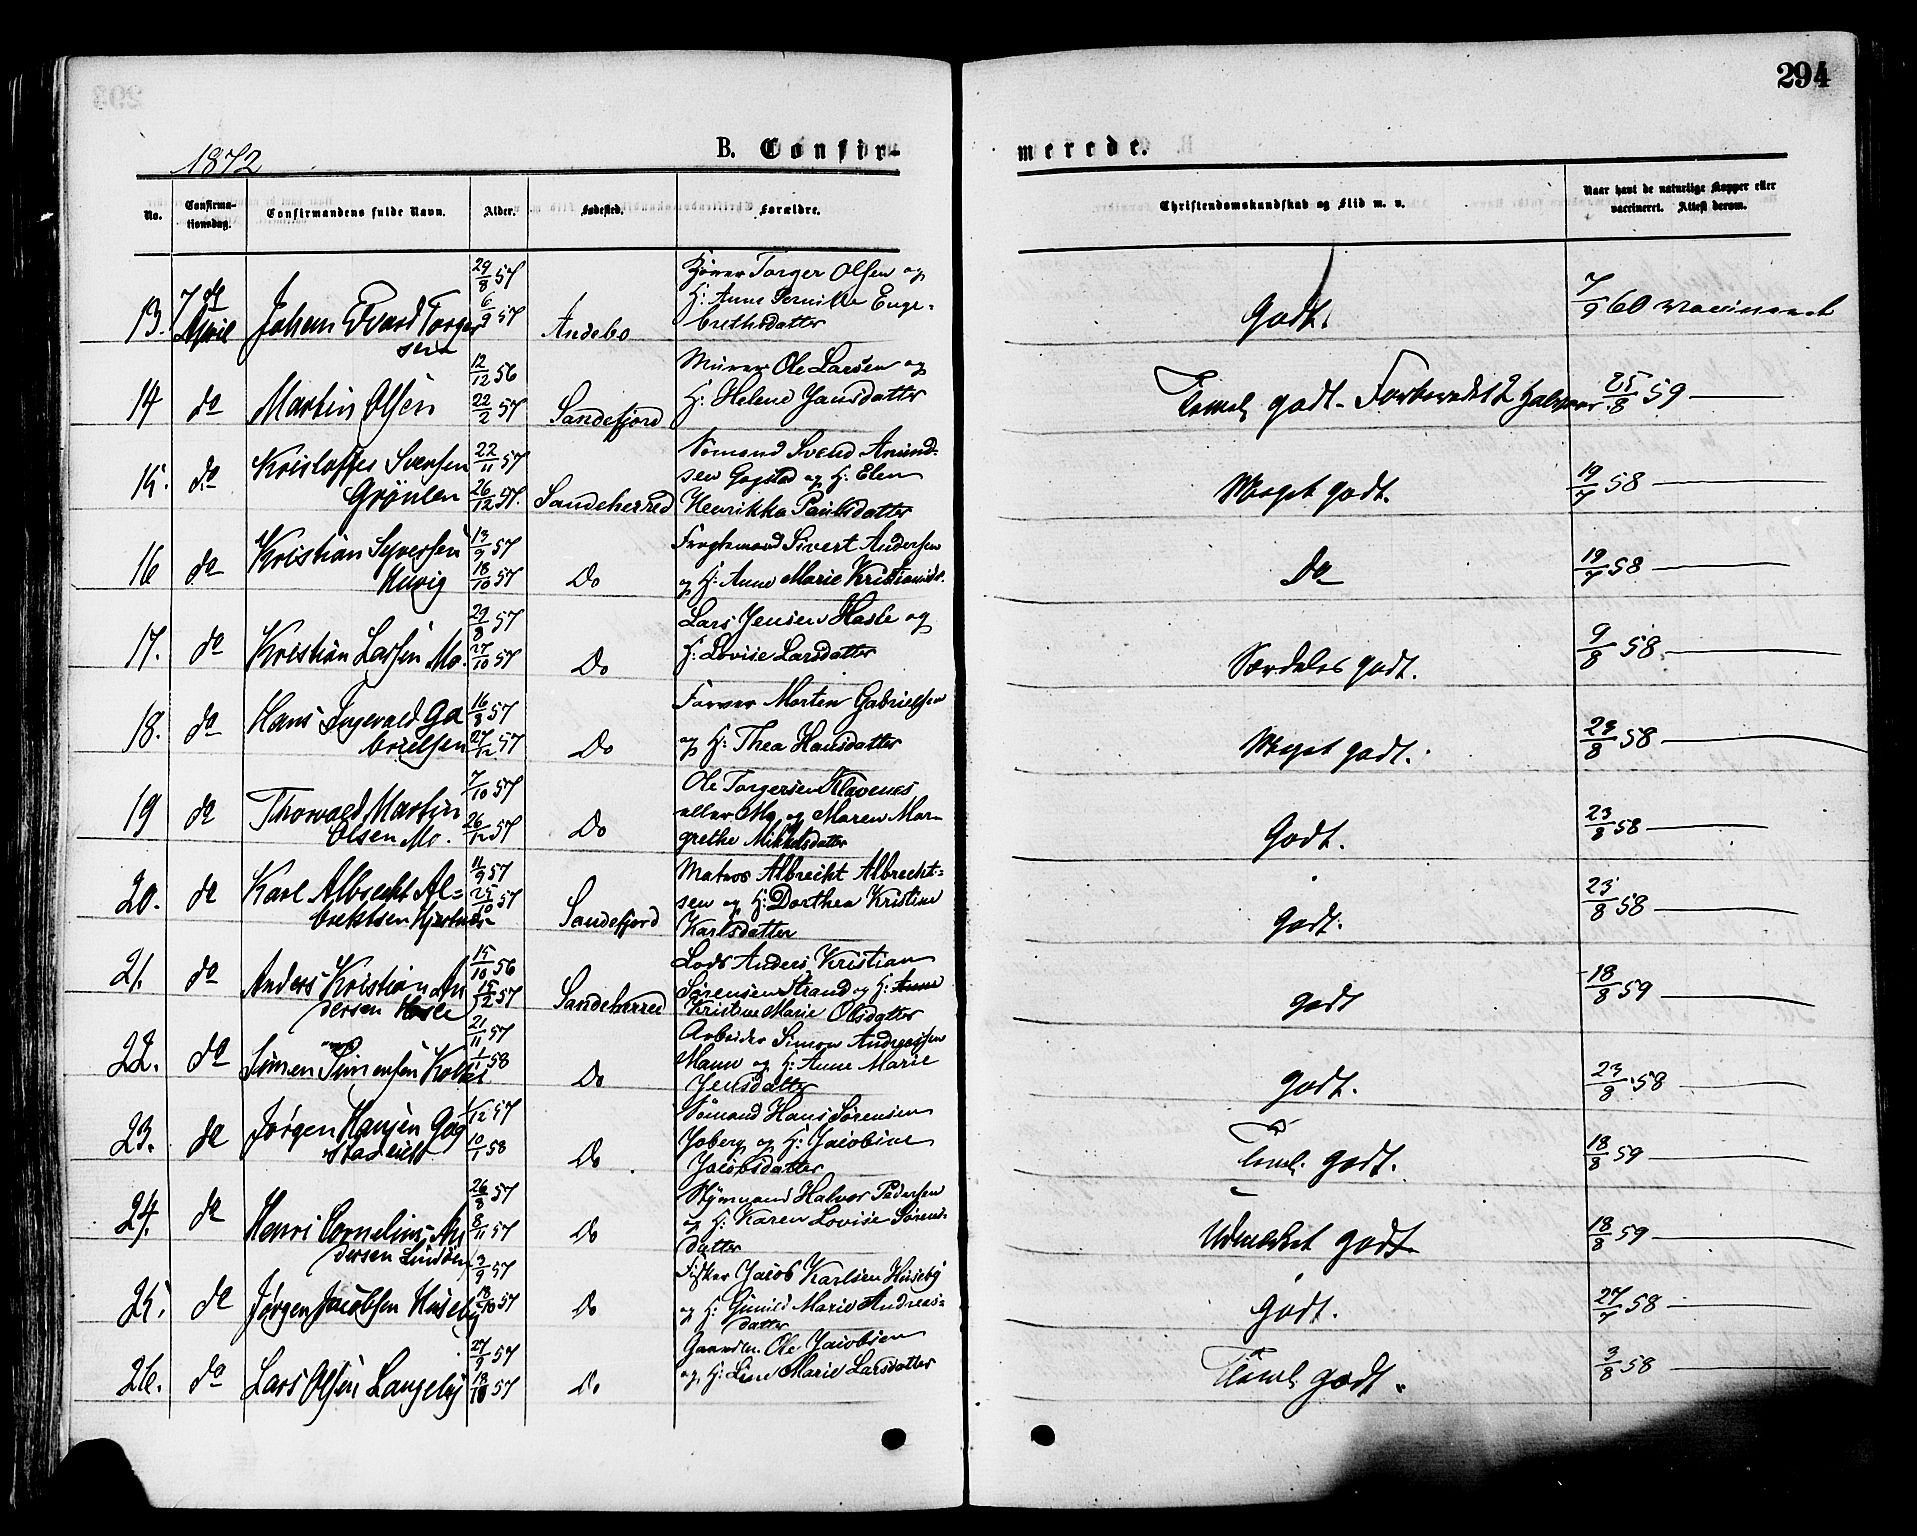 294
1872
B. Confir-
merede.
No.
Confirma-
tionsdag.
Confirmandens fulde Navn.
Alder.
Fødested.
Forældre.
Christendomskundskab og Flid m. v.
Naar havt de naturlige Kopper eller
vaccineret. Attest derom.
13. 7de April Johan Evard Torger
sen
29/8 57
6/9 57
Andebo
Torger Olsen og
H: Anne Pernille Enge-
brethsdatter
Godt.
7/9 60 vaccineret
14 do Martin Olsen
12/12 56
22/2 57
Sandefjord
Murer Ole Larsen og
H: Helene Hansdatter
Teml. godt.
25/8 59
15. do Kristoffer Svensen
Grönlen
22/11 57
26/12 57.
Sandeherred
Sømand Svend Amund-
sen Gogstad og H: Elen
Henrikka Paulsdatter
Meget godt.
19/7 58
16 do Kristian Syversen
Huvig
13/9 57
18/10 57
Do
Fragtemand Sivert Andersen
og H: Anne Marie Kristiansd.
Do
19/7 58
17. do Kristian Larsen Mo.
29/8 57
27/10 57
Do
Lars Jensen Hasle og
H: Lovise Larsdatter
Særdeles godt.
9/8 58
18. do Hans Ingevald Ga
brielsen
16/8 57
27/12 57
Do
Farver Morten Gabrielsen
og H: Thea Hansdatter
Meget godt.
23/8 58
19 do Thorvald Martin
Olsen Mo.
7/10 57
26/12 57
Do
Ole Torgersen Klavenes
eller Mo og Maren Mar-
grethe Mikkelsdatter
Godt.
23/8 58
20. do Karl Albrecht Al-
brektsen Hjertnes
11/9 57
25/10 57
Sandefjord
Matros Albrecht Albrecht-
sen og H: Dorthea Kristine
Karlsdatter
godt.
23/8 58
21. do Anders Kristian An
dersen Hasle
15/10 56
15/2 57
Sandeherred
Lods Anders Kristian
Sørensen Strand og H: Anne
Kristine Marie Olsdatter
godt
18/8 59
22. do Simen Simensen
21/11 57
1/1 58
Do
Arbeider Simon Andreassen
og H: Anne Marie
Jensdatter
godt.
23/8 58
23. do Jørgen Hansen Gog
stadeie
12 57
10/1 58
Do
Sømand Hans Sørensen
og H: Jacobine
Jacobsdatter
Teml. godt.
18/8 59
24. do Henri Cornelius An
dersen
26/8 57
8/11 57
Do
Styrmand Halvor Pedersen
og H: Karen Lovise Sørens-
datter
Udmerket godt
18/8 59
25. do Jørgen Jacobsen Huseby
3/9 57
18/10 57
Do
Fisker Jacob Karlsen Huseby
og H: Gunild Marie Andreas-
datter
Godt.
27/7 58
26. do Lars Olsen Langeby
27/9 57
18/10 57
Do
Gaardm. Ole Jacobsen
og H: Line Marie Larsdatter
Teml. godt.
3/8 58